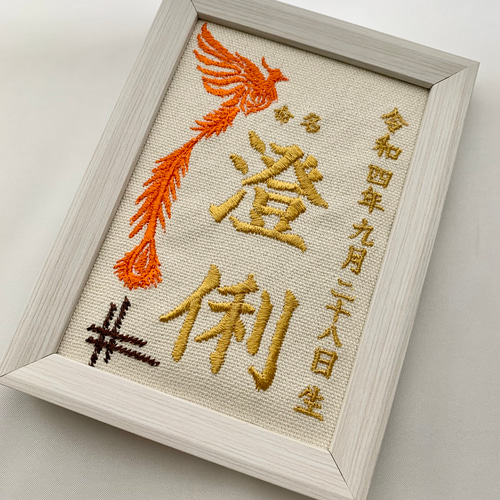 令和四年九月二十八日生
命名
澄俐